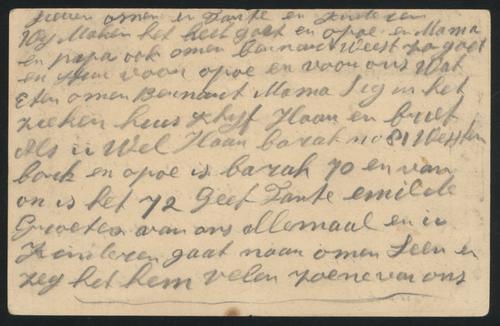 Lieven omen en Tante en Kinderen
Wij Maken het heel goet en opoe en Mama
en papa ook omen bernart Weest zo goet
en voor opoe en voor ons Wat
Eten omen Bernart Mama Lig in het
zieken huis Schrijf Haan en brief
Als u Wel Haan barak no 81 Westten
bork en opoe is barak 70 en van
on is het 72 Geef Tante emilde
Groeten van ons allemaal en u
Kinderen gaat naar omen Leen en
zeg het hem velen zoene van ons